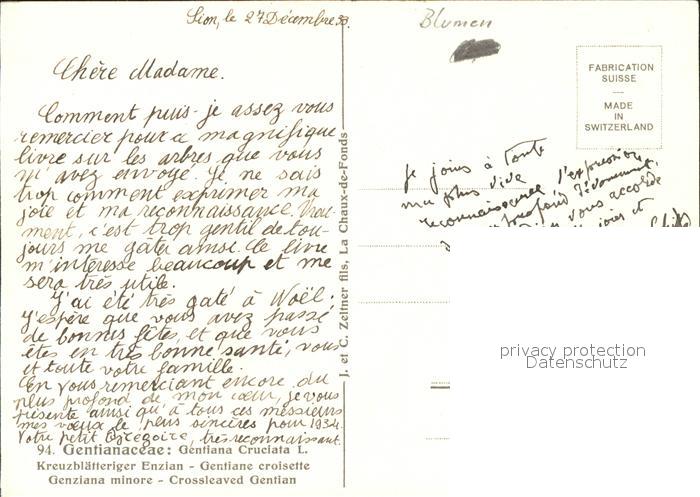 Sion, le 27 Décembre 33.
Chère Madame.
Comment puis-je assez vous
remercier pour ce magnifique
livre sur les arbres que vous
m'avez envoyé. Je ne sais
trop comment exprimer ma
joie et ma reconnaissance. Vrai-
ment, c'est trop gentil de tou-
jours me gâter ainsi. Ce livre
m'intéresse beaucoup et me
sera très utile.
J'ai été très gaté à Noël:
j'espère que vous avez passé
de bonnes fêtes, et que vous
êtes en très bonne santé, vous
et toute votre famille.
En vous remerciant encore, du
plus profond de mon cœur, je vous
présente ainsi qu'à tous ces messieurs
mes vœux le plus sincères pour 1934
Votre petit Grégoire, très reconnaissant.
94. Gentianaceae: Gentiana Cruciata L.
Kreuzblätteriger Enzian - Gentiane croisette
Genziana minore - Crossleaved Gentian
J. et C. Zeltner fils, La Chaux-de-Fonds
Blumen
FABRICATION
SUISSE
MADE
IN
SWITZERLAND
Je joins à toute
ma plus vive
reconnaissance l'expression
profond dévouement.
vous accorde
joies et
privacy protection
Datenschutz